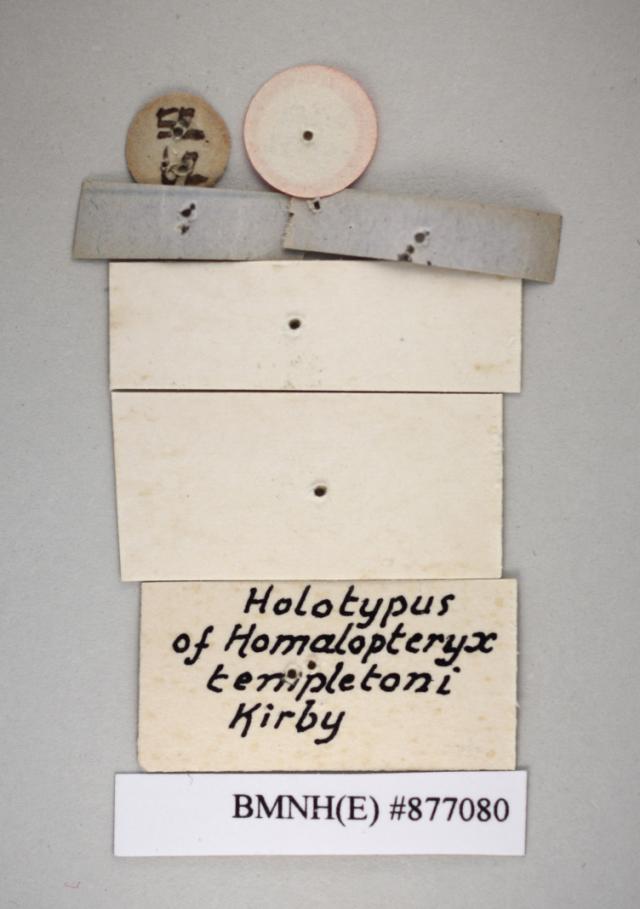 Holotypus
of Homalopteryx
templetoni
Kirby
BMNH(E) #877080